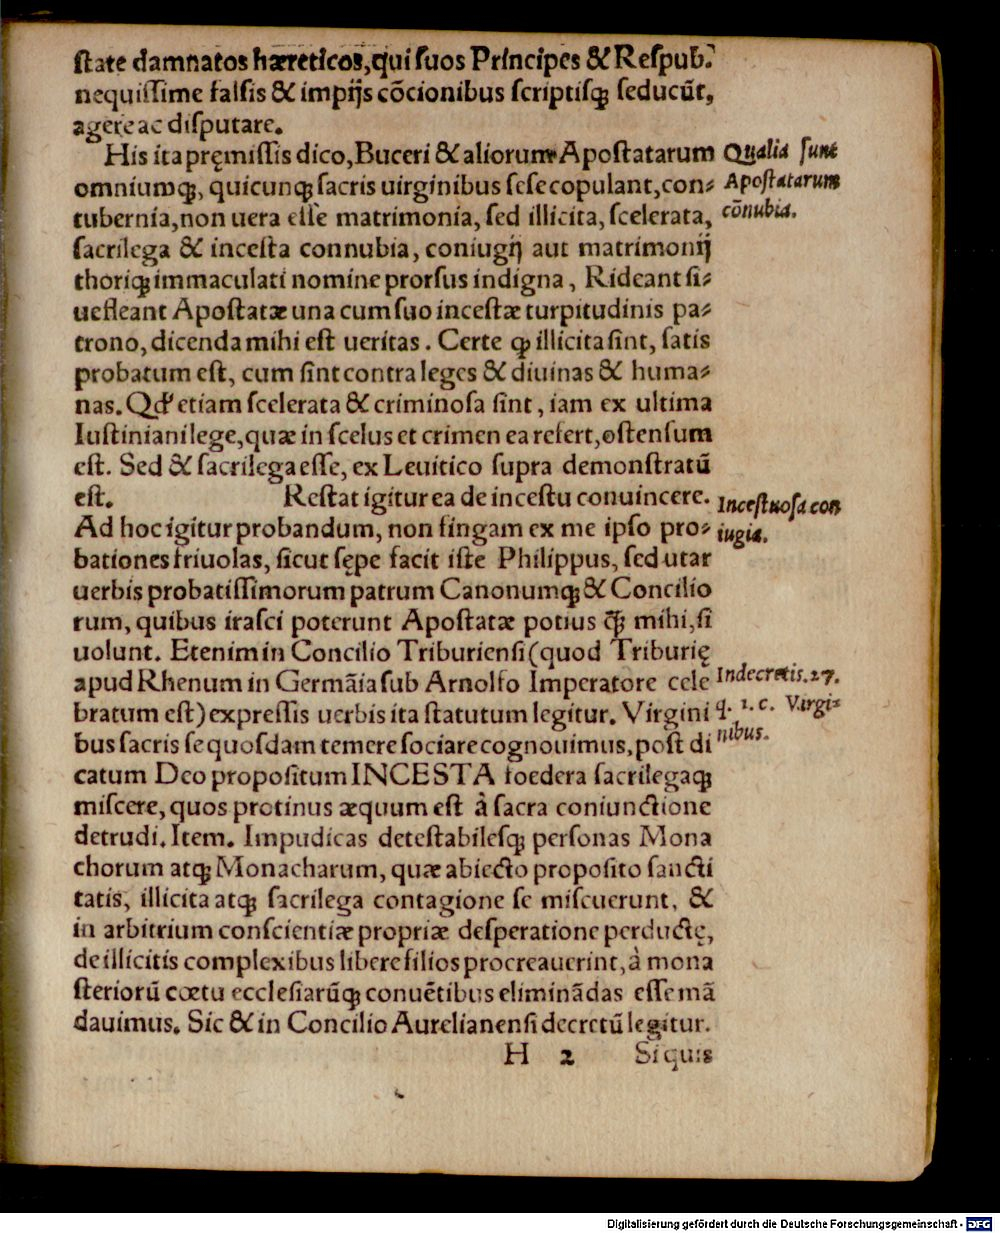 ſtate damnatos hæreticos, qui ſuos Principes & Reſpub.
nequiſſime falſis & impijs cōcionibus ſcriptiſq́ꝫ ſeducūt,
agere ac diſputare.
His ita pręmiſſis dico, Buceri & aliorum Apoſtatarum
omniumqꝫ, quicunqꝫ ſacris uirginibus ſeſe copulant, con⸗
tubernia, non uera eſſe matrimonia, ſed illicita, ſcelerata,
ſacrilega & inceſta connubia, coniugij aut matrimonij
thoriqꝫ immaculati nomine prorſus indigna, Rideant ſi⸗
ue fleant Apoſtatæ una cum ſuo inceſtæ turpitudinis pa⸗
trono, dicenda mihi eſt ueritas. Certe ꝙ illicita ſint, ſatis
probatum eſt, cum ſint contra leges & diuinas & huma⸗
nas. Qd' etiam ſcelerata & criminoſa ſint, iam ex ultima
Iuſtiniani lege, quæ in ſcelus et crimen ea refert, oſtenſum
eſt. Sed & ſacrilega eſſe, ex Leuitico ſupra demonſtratū
eſt. Reſtat igitur ea de inceſtu conuincere.
Ad hoc igitur probandum, non fingam ex me ipſo pro⸗
bationes friuolas, ſicut ſępe facit iſte Philippus, ſed utar
uerbis probatiſſimorum patrum Canonumqꝫ & Concilio
rum, quibus iraſci poterunt Apoſtatæ potius q̄ꝫ mihi, ſi
uolunt. Etenim in Concilio Triburienſi (quod Triburię
apud Rhenum in Germāia ſub Arnolfo Imperatore cele
bratum eſt) expreſſis uerbis ita ſtatutum legitur. Virgini
bus ſacris ſe quoſdam temere ſociare cognouimus, poſt di
catum Deo propoſitum INCESTA foedera ſacrilegaqꝫ
miſcere, quos protinus æquum eſt à ſacra coniunctione
detrudi. Item. Impudicas deteſtabileſqꝫ perſonas Mona
chorum atqꝫ Monacharum, quæ abiecto propoſito ſancti
tatis, illicita atqꝫ ſacrilega contagione ſe miſcuerunt, &
in arbitrium conſcientiæ propriæ deſperatione perductę,
de illicitis complexibus libere filios procreauerint, à mona
ſteriorū cœtu eccleſiarūqꝫ conuētibus eliminādas eſſe mā
dauimus. Sic & in Concilio Aurelianenſi decretū legitur.
H 2 Siquis
Qualia ſunt
Apoſtatarum
cōnubia.
Inceſtuoſa con
iugia.
In decretis. 27.
q. 1. c. Virgi⸗
nibus.
Digitalisierung gefördert durch die Deutsche Forschungsgemeinschaft - DFG